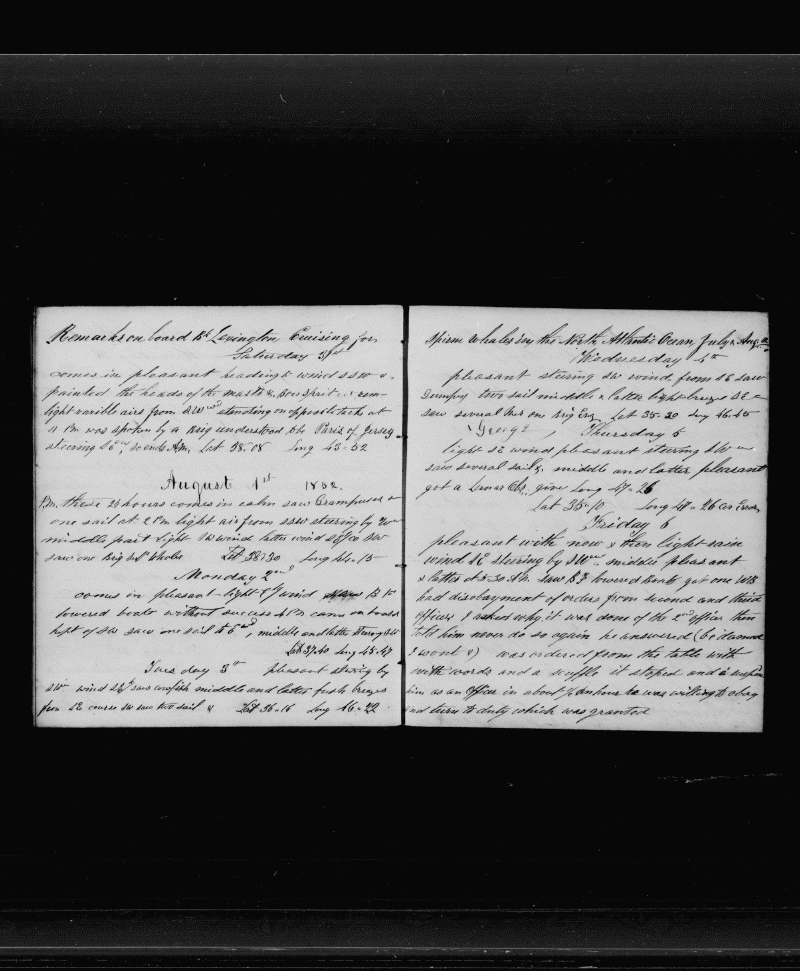 Remarks on board Bk Lexington Cruising for
Saturday 31st
comes in pleasant heading wind SSW &
painted the heads of the masts & bowsprit
light varible airs from SSWrd standing on opposite tacks at
PM was spoken by a Brig understood the Paris of Jersey
steering so ends AM, Lat 38.08 Long 43-52
August 1st 1852
PM these 24 hours comes in calm saw Grampuses &
one sail at 2 PM light air from SSW steering by
middle part light wind latter wind
saw one Brig Whales Lat 38:30 Long 44-15
Monday 2nd
comes in pleasant light wind
lowered boats without success PM came on board
kept off saw one sail middle and latter steering SW
Lat 37.40 Long 45-47
Tuesday 3rd pleasant steering by
SW wind saw cowfish middle and latter fresh breezes
from SE course SW saw two sail & Lat 36-16 Long 46-22
Sperm Whales in the North Atlantic Ocean July & Aug
Wednesday 4th
pleasant steering SW wind from SE saw
two sail middle & latter light breezes SE
saw several one Brig Lat 35-20 Long 46-45
George Thursday 5
light SE wind pleasant steering SW
saw several sail & middle and latter pleasant
got a Lunar Obs, give Long 47-26
Lat 35-10 Long 47-26
Friday 6
pleasant with now & then light rain
wind SE steering by SW middle pleasant
& latter at 5-30 AM saw lowered Boats got one
had disobayment of orders from second and third
officers I asked why it was done of the 2nd officer then
told him never do so again he answered (be damned
I wont &) was ordered from the table with
with words and a scuffle it stoped and
him as an officer in about hours he was willing to obay
and turn to duty which was granted